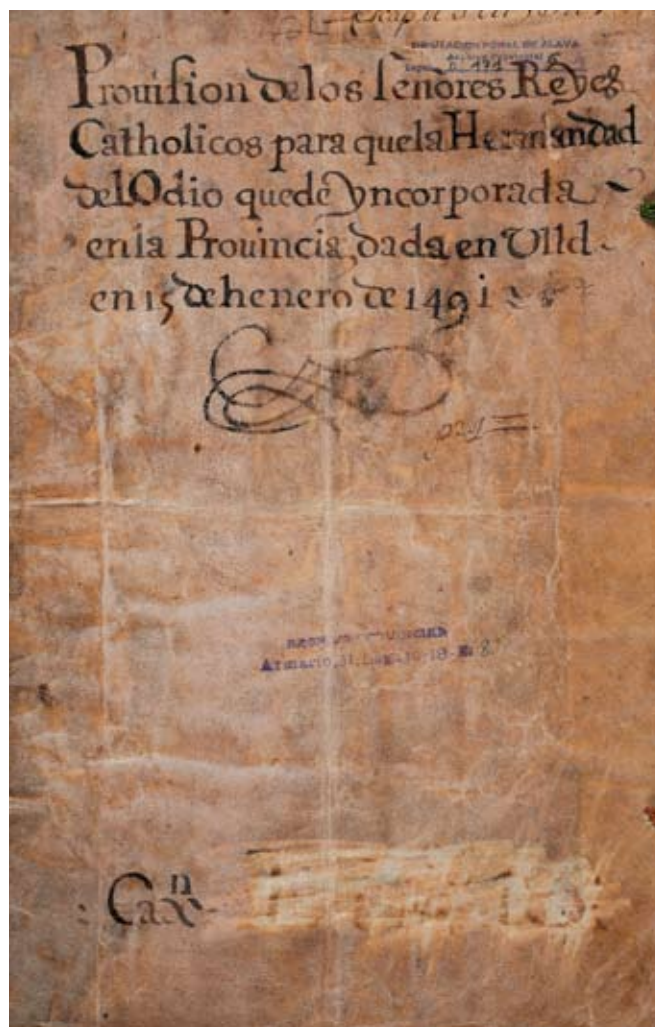 DIPUTACION FORAL DE ALAVA
Prouision de los señores Reyes
Catholicos para que la Hermandad
del Odio quede yncorporada
en la Prouincia, dada en Vlld.
en 15 de henero de 1491
Armario, 11, Legajo, 18-
: Caxn